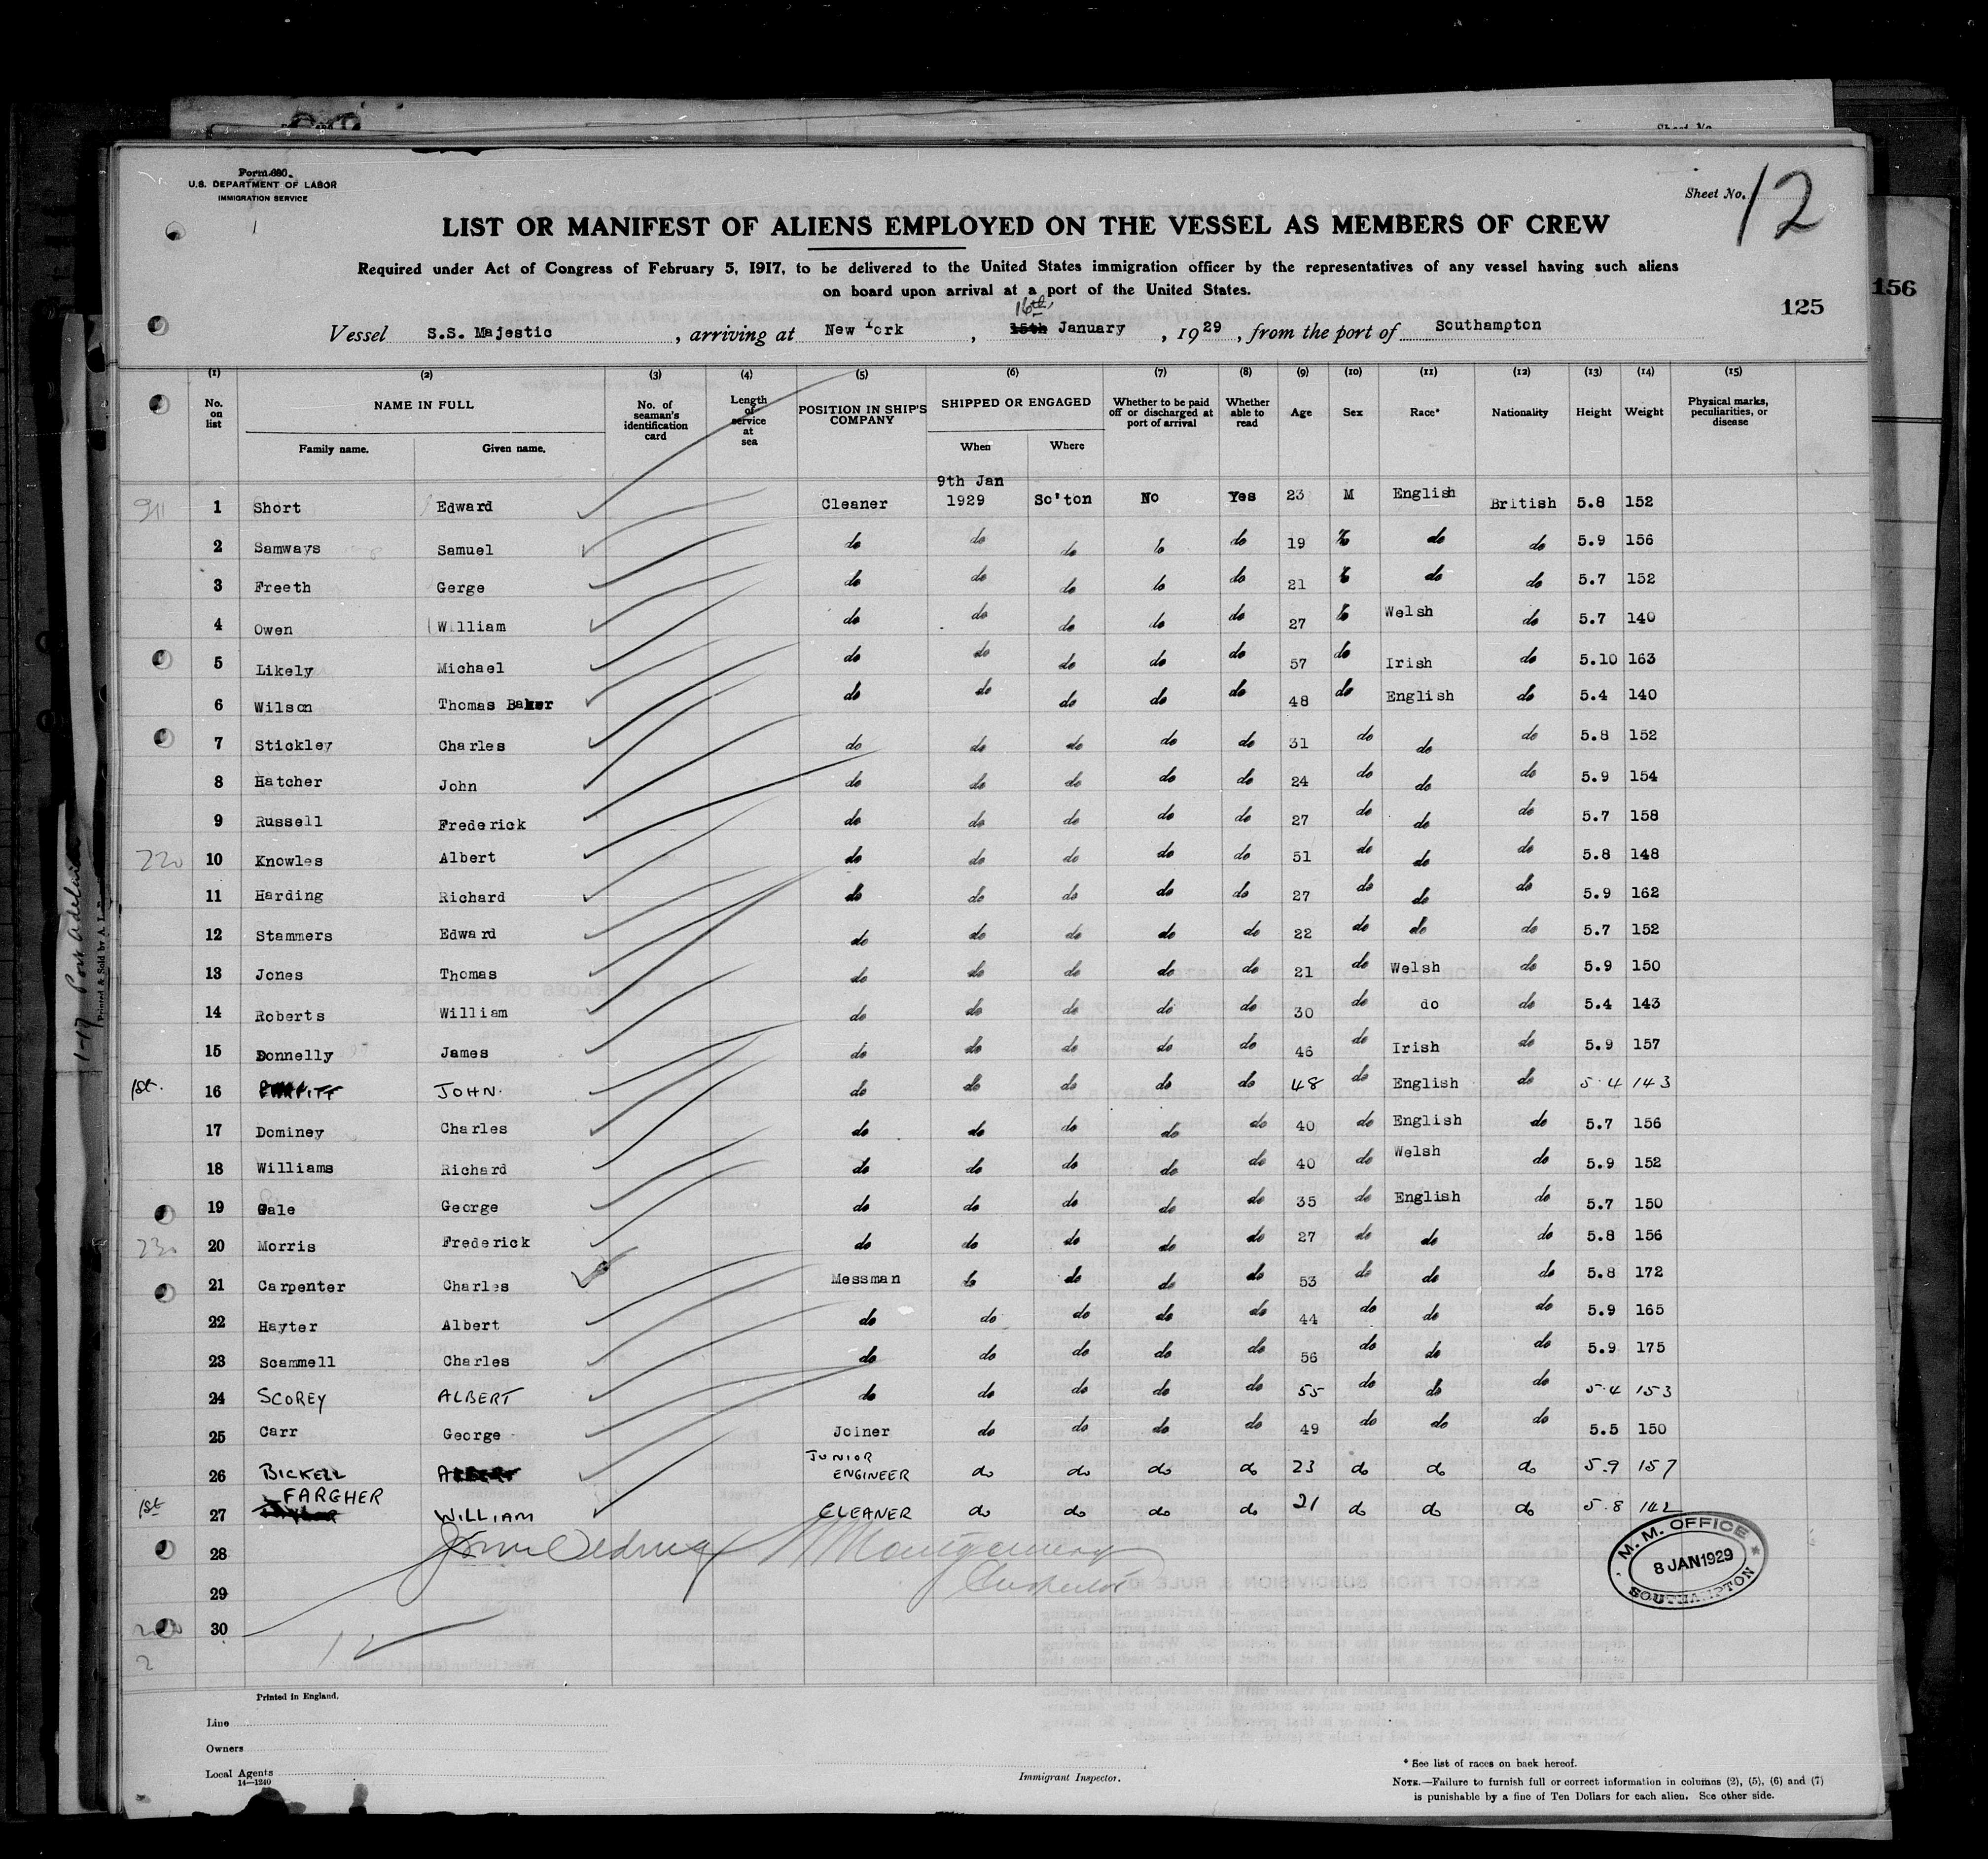 Form 680.
U.S. DEPARTMENT OF LABOR
IMMIGRATION SERVICE
Sheet No. 12
LIST OR MANIFEST OF ALIENS EMPLOYED ON THE VESSEL AS MEMBERS OF CREW
Required under Act of Congress of February 5, 1917, to be delivered to the United States immigration officer by the representatives of any vessel having such aliens
on board upon arrival at a port of the United States.
125
156
16th
Vessel S.S. Majestic, arriving at New York, 15th January, 1929, from the port of Southampton
(1) (2) (3) (4) (5) (6) (7) (8) (9) (10) (11) (12) (13) (14) (15)
No. on list NAME IN FULL Family name. Given name. No. of seaman's identification card Length of service at sea POSITION IN SHIP'S COMPANY SHIPPED OR ENGAGED When Where Whether to be paid off or discharged at port of arrival Whether able to read Age Sex Race* Nationality Height Weight Physical marks, peculiarities, or disease
1 Short Edward Cleaner 9th Jan 1929 So'ton No Yes 23 M English British 5.8 152
2 Samways Samuel do do do do do 19 do do do 5.9 156
3 Freeth Gerge do do do do do 21 do do do 5.7 152
4 Owen William do do do do do 27 do Welsh do 5.7 140
5 Likely Michael do do do do do 57 do Irish do 5.10 163
6 Wilson Thomas Baker do do do do do 48 do English do 5.4 140
7 Stickley Charles do do do do do 31 do do do 5.8 152
8 Hatcher John do do do do do 24 do do do 5.9 154
9 Russell Frederick do do do do do 27 do do do 5.7 158
220 10 Knowles Albert do do do do do 51 do do do 5.8 148
11 Harding Richard do do do do do 27 do do do 5.9 162
12 Stammers Edward do do do do do 22 do do do 5.7 152
13 Jones Thomas do do do do do 21 do Welsh do 5.9 150
14 Roberts William do do do do do 30 do do do 5.4 143
15 Donnelly James do do do do do 46 do Irish do 5.9 157
1st. 16 JOHN. do do do do do 48 do English do 5.4 143
17 Dominey Charles do do do do do 40 do English do 5.7 156
18 Williams Richard do do do do do 40 do Welsh do 5.9 152
19 Gale George do do do do do 35 do English do 5.7 150
230 20 Morris Frederick do do do do do 27 do do do 5.8 156
21 Carpenter Charles Messman do do do do 53 do do do 5.8 172
22 Hayter Albert do do do do do 44 do do do 5.9 165
23 Scammell Charles do do do do do 56 do do do 5.9 175
24 SCOREY ALBERT do do do do do 55 do do do 5.4 153
25 Carr George Joiner do do do do 49 do do do 5.5 150
26 BICKELL ALBERT JUNIOR ENGINEER do do do do 23 do do do 5.9 157
1st 27 FARGHER WILLIAM CLEANER do do do do 21 do do do 5.8 142
28
29
30
12
M. M. OFFICE
8 JAN 1929
SOUTHAMPTON
Printed in England.
Line
Owners
Local Agents
14—1240
Immigrant Inspector.
* See list of races on back hereof.
NOTE.—Failure to furnish full or correct information in columns (2), (5), (6) and (7)
is punishable by a fine of Ten Dollars for each alien. See other side.